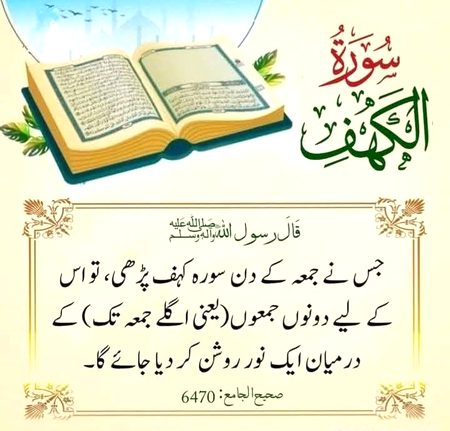 سُورَةُ
الكَهْفِ
قَالَ رسول اللهِ صلی اللہ علیہ وآلہ وسلم
جس نے جمعہ کے دن سورہ کہف پڑھی، تو اس
کے لیے دونوں جمعوں(یعنی اگلے جمعہ تک) کے
درمیان ایک نور روشن کر دیا جائے گا۔
صحیح الجامع: 6470